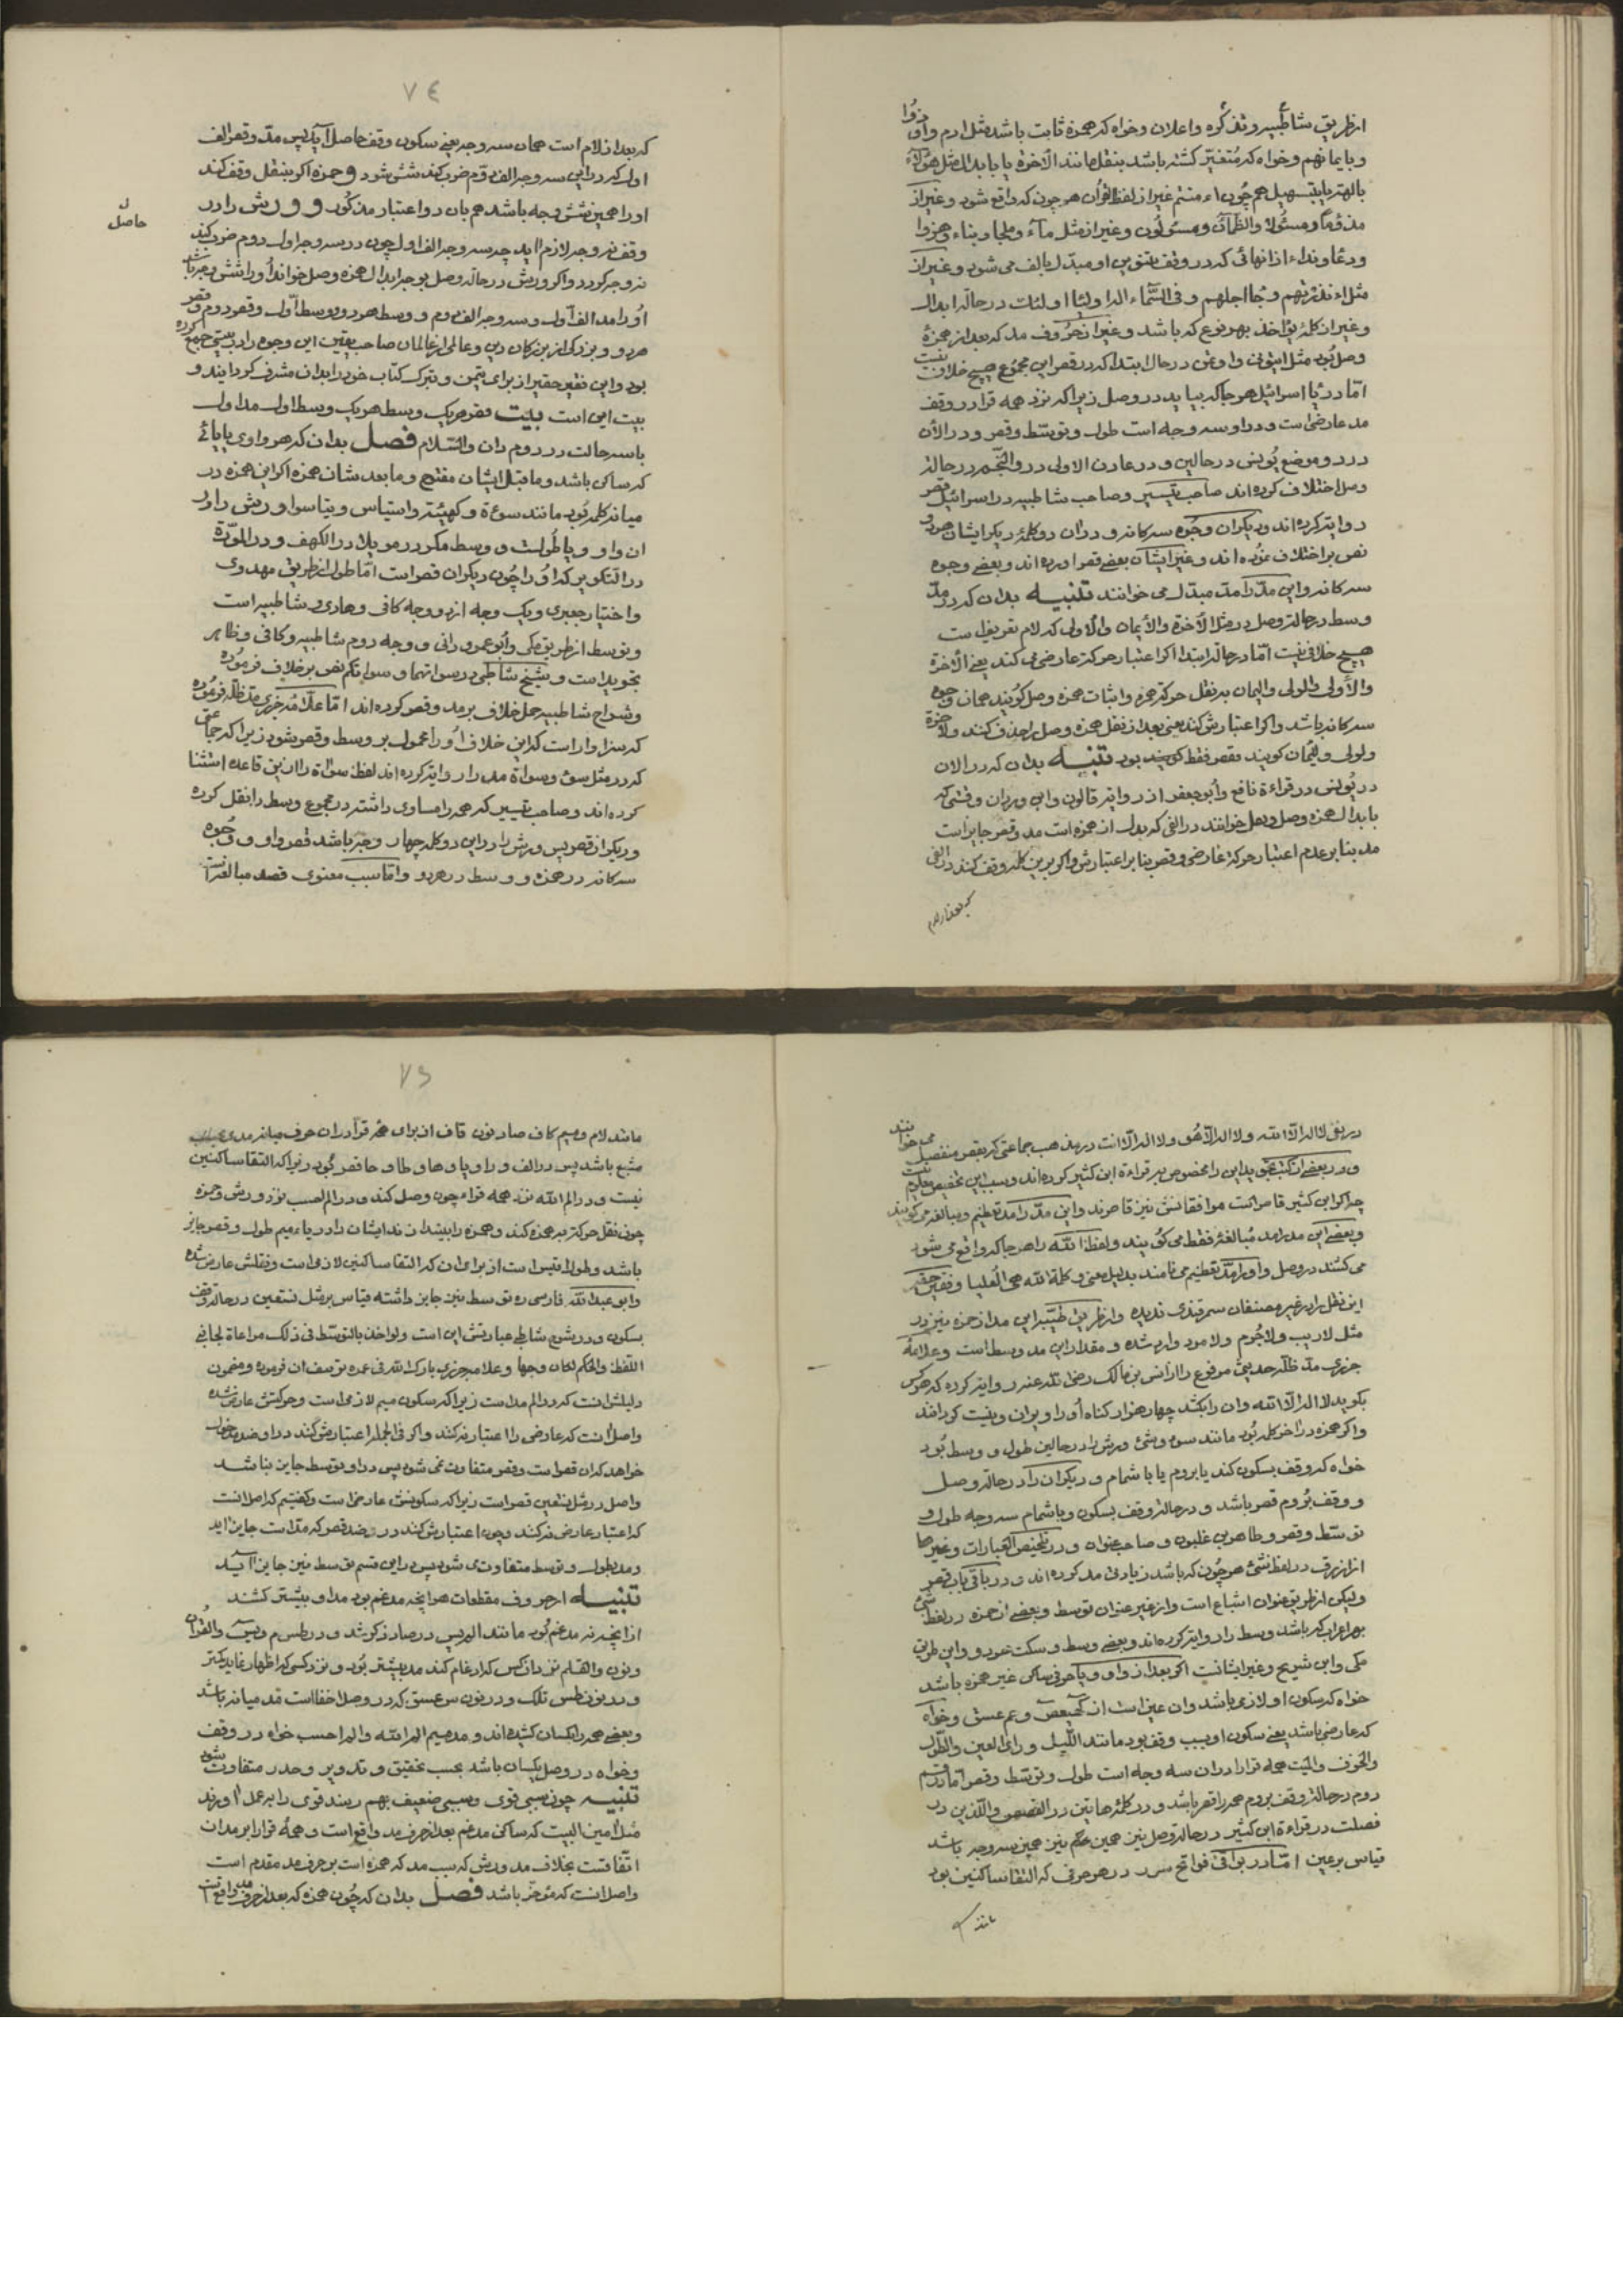 از طریق شاطبیه وتذکره واعلان وخواه که همزه ثابت باشد مثل ادم واوزوا
وبایمانهم وخواه که متغیّر کشته باشد بنقل مانند الاخرة یا بابدال مثل هؤلاء
الهة یا بتسهیل همچون اءمنتم غیر از لفظ القرأن هرچون که واقع شود وغیر از
مذؤما ومسئولا والظمآن ومسئولون وغیر از مثل مآء وملجأ وبناء وهزوا
ودعاء ونداء از انهائی که در وقف تنوین او مبدّل بالف می شود وغیر از
وغیر از کلمه یؤاخذ بهر نوع که باشد وغیر از حروف مد که بعد از همزه
وصل بود مثل ایتونی واوتمن در حال ابتدا که در قصر این مجموع هیچ خلاف نیست
امّا در یا اسرائیل هرجا که بیاید در وصل زیرا که نزد همه قرا در وقف
مد عارضی است ودر او سه وجه است طول وتوسّط وقصر ودر الأن
در دو موضع یونس در حالین ودر عادن الاولی در والنّجم در حالة
وصل اختلاف کرده اند صاحب تیسیر وصاحب شاطبیه در اسرائیل قصر
روایة کرده اند ودیکران وجوه سه کانه ودر ان دو کلمه دیکر ایشان هردو
نص بر اختلاف نموده اند وغیر ایشان بعضی قصر اورده اند وبعضی وجوه
سه کانه واین مدّ را مدّ مبدّل می خوانند تنبیه بدان که در مدّ
وسط در حالة وصل در مثل الأخرة والأیمان والأولی که لام تعریف است
هیچ خلافی نیست امّا در حالة ابتدا اکر اعتبار حرکة عارضی می کند یعنی الأخرة
والأولی والولی والیمان بر نقل حرکة همزه واثبات همزه وصل کویند همان وجوه
سه کانه باشد واکر اعتبارش کند یعنی بعد از نقل همزه وصل را حذف کند ولاخرة
ولولی ولیمان کویند قصر فقط بود تنبیه بدان که در الان
در یونس در قراءة نافع وابو جعفر از روایة قالون وابن وردان وقتی که
بابدال همزه وصل ونقل خوانند در الفی که بدل از همزه است مد وقصر جایز است
مد بنا بر عدم اعتبار حرکة عارضی وقصر بنا بر اعتبارش واکر برین کلمه وقف کنند در الفی
که بعد از لام
٧٤
که بعد از لام است همان سه وجه یعنی سکون وقف حاصل آید پس مدّ وقصر الف
اول که در این سه وجه الف دوّم ضرب کند شش شود وحمزه اکر بنقل وقف کند
اورا همین شش وجه باشد هم بان دو اعتبار مذکور وورش را در
حاصل
وقف نه وجه لازم اید چه سه وجه الف اول چون در سه وجه اول دوم ضرب کنند
نه وجه کردد واکر ورش در حالة وصل بوجه ابدال همزه وصل خواند اورا شش وجه باشد
اورا مد الف اول وسه وجه الف دوم ووسط هردو ووسط اول وقصر دوم وقصر
هردو وبزرکی از بزرکان دین وعالمی از عالمان صاحب یقین این وجوه را در بیتی جمع کرده
بود واین فقیر حقیر از برای تیمن وتبرک کتاب خود را بدان مشرف کردانید و
بیت این است بیت قصر هریک وسط هریک وسط اول مد اول
باسه حالت در دوم دان والسّلام فصل بدان که هر واوی یا یائی
که ساکن باشد وما قبل ایشان مفتوح وما بعد شان همزه اکر این همزه در
میانه کلمه بود مانند سوءة وکهیئة واستیاس وییاسوا ورش را در
ان واو ویا طولست ووسط مکر در موئلا در الکهف ودر الموؤدة
در التکویر که اورا چون دیکران قصر است امّا طول از طریق مهدوی
واختیار جعبری ویک وجه از دو وجه کافی وهادی وشاطبیه است
وتوسط از طریق مکی وابو عمرو دانی ووجه دوم شاطبیه وکافی وظاهر
تجرید است وشیخ شاطبی در سواتهما وسواتکم نص بر خلاف فرموده
وشراح شاطبیه حمل خلاف بر مد وقصر کرده اند امّا علامه جزری مدّ ظلّه فرموده
که سزاوار است که این خلاف اورا محمول بر وسط وقصر شود زیرا که جماعتی
که در مثل سوء وسواة مد را روایة کرده اند لفظ سواة را از این قاعده استثنا
کرده اند وصاحب تیسیر که همه را مساوی داشته در مجموع وسط را نقل کرده
ودیکران قصر پس ورش را در این دو کلمه چهار وجه باشد قصر واو ووجوه
سه کانه در همزه ووسط در هردو وامّا سبب معنوی قصد مبالغه است
در نفی لا اله الا الله ولا اله الا هو ولا اله الا انت در مذهب جماعتی که بقصر منفصل می خوانند
ودر بعضی از کتب تجوید این را مخصوص بر قراءة ابن کثیر کرده اند وسبب این تخصیص معلوم نیست
چرا که ابن کثیر قاصر است موافقانش نیز قاصرند واین مدّ را مد تعظیم ومبالغه می کویند
وبعضی این مد را مد مبالغه فقط می کویند ولفظ الله را هرجا که واقع می شود
می کشند در وصل واورا مدّ تعظیم می نامند بدلیل معنی وکلمة الله هی العلیا وفقیر حقیر
این نقل را در غیر مصنفات سمرقندی ندیده واز طریق طیّبه این مد از حمزه نیز در
مثل لا ریب ولا جرم ولا مرد وارد شده ومقدار این مد وسط است وعلامه
جزری مدّ ظلّه حدیثی مرفوع را از انس بن مالک رضی الله عنه روایة کرده که هرکس
بکوید لا اله الا الله وان را بکشد چهار هزار کناه اورا ویران ونیست کردانند
واکر همزه در اخر کلمه بود مانند سوء وشیء ورش را در حالین طول ووسط بود
خواه که وقف بسکون کند یا بروم یا باشمام ودیکران را در حالة وصل
ووقف بروم قصر باشد ودر حالة وقف بسکون وباشمام سه وجه طول و
توسّط وقصر وطاهر بن غلبون وصاحب عنوان ودر تلخیص العبارات وغیرها
از ازرق در لفظ شیء هرچون که باشد زیادتی مد کرده اند ودر باقی باب قصر
ولیکن از طریق عنوان اشباع است واز غیر عنوان توسط وبعضی از حمزه در لفظ شیء
بهر اعراب که باشد وسط را روایة کرده اند وبعضی وسط وسکت هردو واین طریق
مکی وابن شریح وغیر ایشانست اکر بعد از واو ویا حرفی ساکن غیر همزه باشد
خواه که سکون او لازمی باشد وان عین است از کهیعص وحم عسق وخواه
که عارضی باشد یعنی سکون او بسبب وقف بود مانند اللّیل ورای العین والطّول
والخوف والمیت همه قرا را در ان سه وجه است طول وتوسّط وقصر امّا در قسم
دوم در حالة وقف بروم همه را قصر باشد ودر کلمه هاتین در القصص واللّذین در
فصلت در قراءة ابن کثیر در حالة وصل نیز همین حکم نیز همین سه وجه باشد
قیاس بر عین امّا در بواقی فواتح سور در هر حرفی که التقا ساکنین بود
مانند
٧٥
مانند لام ومیم کاف صاد نون قاف از برای همه قرآ در ان حرف میانه مدی
مشبع باشد پس در الف ورا ویا وها وطا وحا قصر بود زیرا که التقا ساکنین
نیست ودر الم الله نزد همه قراء چون وصل کند ودر الم احسب نزد ورش وحمزه
چون نقل حرکة همزه کند وهمزه را بیندازند ایشان را در یاء میم طول وقصر جایز
باشد وطول اقیس است از برای ان که التقا ساکنین لازمی است ونقلش عارض شده
وابو عبد الله فارسی توسط نیز جایز داشته قیاس بر مثل نستعین در حالة وقف
بسکون ودر شرح شاطبی عبارتش این است ولو اخذ بالتوسّط فی ذلک مراعاة لجانبی
اللّفظ والحکم لکان وجها وعلامه جزری بارک الله فی عمره توسّف ان فرموده ومضمون
دلیلش انست که در الم مد است زیرا که سکون میم لازمی است وحرکتش عارض شده
واصل انست که عارض را اعتبار نکنند واکر فی الجمله اعتبارش کنند در او ضد طول
خواهد که ان قصر است وقصر متفاوت نمی شود پس در او توسط جایز نباشد
واصل در مثل نستعین قصر است زیرا که سکونش عارضی است وکفتیم که اصل انست
که اعتبار عارض نکنند وچون اعتبارش کنند در ضد قصر که مدّ است جایز اید
ومد بطول وتوسط متفاوت می شود پس در این قسم توسط نیز جایز آید
تنبیه از حروف مقطعات هر انچه مدغم بود مد او بیشتر کشند
از انچه نه مدغم بود مانند المر یس در صاد ذکر شد ودر طسم ویس والقرآن
ونون والقلم نزد ان کس که ادغام کند مد بیشتر بود ونزد کسی که اظهار نماید کمتر
ودر نون طس تلک ودر نون س عسق که در وصل اخفا است قد میانه باشد
وبعضی همه را یکسان کشیده اند ومد میم الم الله والم احسب خواه در وقف
وخواه در وصل یکسان باشد بحسب تحقیق وتدویر وحدر متفاوت شود
تنبیه چون سببی قوی وسببی ضعیف بهم رسند قوی را به عمل اورند
مثل امین البیت که ساکن مدغم بعد از حرف مد واقع است وهمه قرا را بر مد ان
اتّفاقست بخلاف مد ورش که سبب مد که همزه است بر حرف مد مقدم است
واصل انست که مؤخّر باشد فصل بدان که چون همزه که بعد از حرف مد واقع است